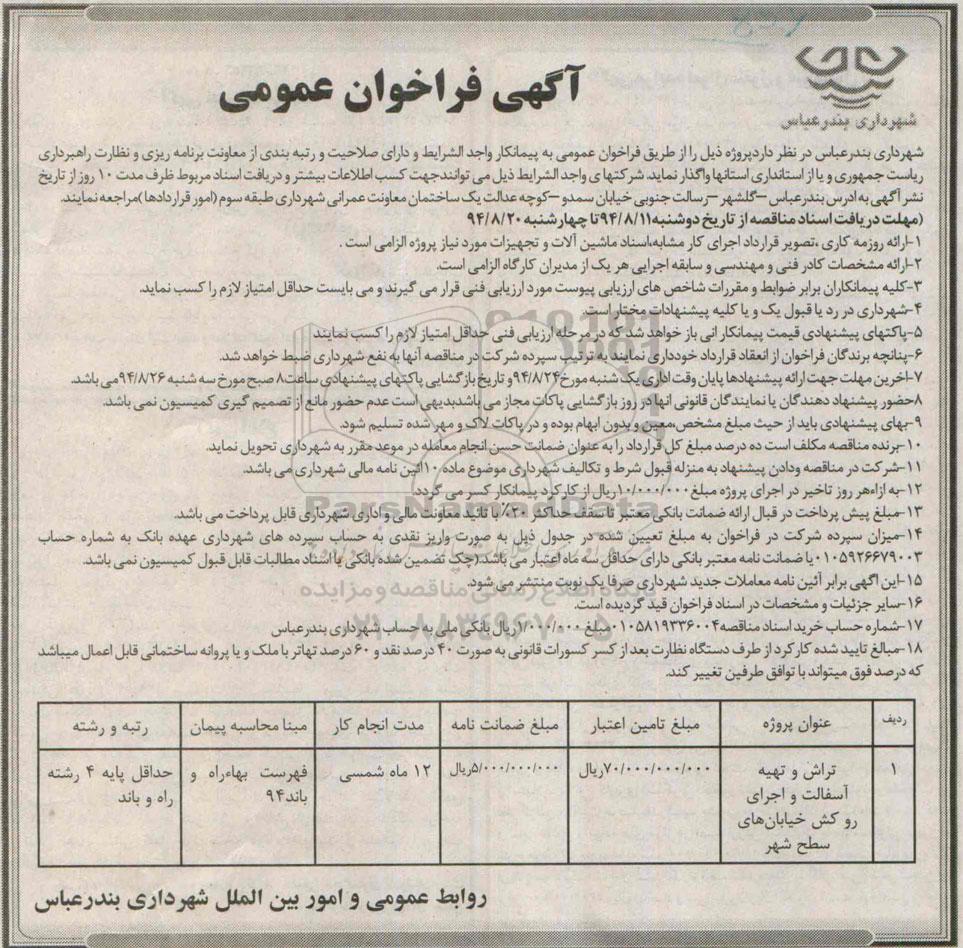 آگهی فراخوان عمومی
شهرداری بندرعباس
شهرداری بندرعباس در نظر داردپروژه ذیل را از طریق فراخوان عمومی به پیمانکار واجد الشرایط و دارای صلاحیت و رتبه بندی از معاونت برنامه ریزی و نظارت راهبرداری
ریاست جمهوری و یا از استانداری استانها واگذار نماید. شرکتهای واجد الشرایط ذیل می توانندجهت کسب اطلاعات بیشتر و دریافت اسناد مربوط ظرف مدت ۱۰ روز از تاریخ
نشر آگهی به ادرس بندرعباس –گلشهر –رسالت جنوبی خیابان سمدو –کوچه عدالت یک ساختمان معاونت عمرانی شهرداری طبقه سوم (امور قراردادها)مراجعه نمایند.
(مهلت دریافت اسناد مناقصه از تاریخ دوشنبه ۹۴/۸/۱۱تا چهارشنبه ۹۴/۸/۲۰
۱-ارائه روزمه کاری ،تصویر قرارداد اجرای کار مشابه،اسناد ماشین آلات و تجهیزات مورد نیاز پروژه الزامی است .
۲-ارائه مشخصات کادر فنی و مهندسی و سابقه اجرایی هر یک از مدیران کارگاه الزامی است.
۳-کلیه پیمانکاران برابر ضوابط و مقررات شاخص های ارزیابی پیوست مورد ارزیابی فنی قرار می گیرند و می بایست حداقل امتیاز لازم را کسب نماید.
۴-شهرداری در رد یا قبول یک و یا کلیه پیشنهادات مختار است.
۵-پاکتهای پیشنهادی قیمت پیمانکارانی باز خواهد شد که در مرحله ارزیابی فنی حداقل امتیاز لازم را کسب نمایند
۶-چنانچه برندگان فراخوان از انعقاد قرارداد خودداری نمایند به ترتیب سپرده شرکت در مناقصه آنها به نفع شهرداری ضبط خواهد شد.
۷-اخرین مهلت جهت ارائه پیشنهادها پایان وقت اداری یک شنبه مورخ ۹۴/۸/۲۴و تاریخ بازگشایی پاکتهای پیشنهادی ساعت۸ صبح مورخ سه شنبه ۹۴/۸/۲۶می باشد.
۸حضور پیشنهاد دهندگان یا نمایندگان قانونی انها در روز بازگشایی پاکات مجاز می باشدبدیهی است عدم حضور مانع از تصمیم گیری کمیسیون نمی باشد.
۹-بهای پیشنهادی باید از حیث مبلغ مشخص،معین و بدون ابهام بوده و در پاکات لاک و مهر شده تسلیم شود.
۱۰-برنده مناقصه مکلف است ده درصد مبلغ کل قرارداد را به عنوان ضمانت حسن انجام معامله در موعد مقرر به شهرداری تحویل نماید.
۱۱-شرکت در مناقصه ودادن پیشنهاد به منزله قبول شرط و تکالیف شهرداری موضوع ماده ۱۰ائین نامه مالی شهرداری می باشد.
۱۲-به ازاءهر روز تاخیر در اجرای پروژه مبلغ ۱۰/۰۰۰/۰۰۰ریال از کارکرد پیمانکار کسر می گردد.
۱۳-مبلغ پیش پرداخت در قبال ارائه ضمانت بانکی معتبر تا سقف حداکثر ۲۰٪ با تائید معاونت مالی و اداری شهرداری قابل پرداخت می باشد.
۱۴-میزان سپرده شرکت در فراخوان به مبلغ تعیین شده در جدول ذیل به صورت واریز نقدی به حساب سپرده های شهرداری عهده بانک به شماره حساب
۰۱۰۵۹۲۶۶۷۹۰۰۳یا ضمانت نامه معتبر بانکی دارای حداقل سه ماه اعتبار می باشد.(چک تضمین شده بانکی یا اسناد مطالبات قابل قبول کمیسیون نمی باشد.
۱۵-این اگهی برابر آئین نامه معاملات جدید شهرداری صرفا یک نوبت منتشر می شود.
۱۶-سایر جزئیات و مشخصات در اسناد فراخوان قید گردیده است.
۱۷-شماره حساب خرید اسناد مناقصه۰۱۰۵۸۱۹۳۳۶۰۰۴مبلغ ۱/۰۰۰/۰۰۰ریال بانکی ملی به حساب شهرداری بندرعباس
۱۸-مبالغ تایید شده کارکرد از طرف دستگاه نظارت بعد از کسر کسورات قانونی به صورت ۴۰ درصد نقد و ۶۰ درصد تهاتر با ملک و یا پروانه ساختمانی قابل اعمال میباشد
که درصد فوق میتواند با توافق طرفین تغییر کند.
ردیف عنوان پروژه مبلغ تامین اعتبار مبلغ ضمانت نامه مدت انجام کار مبنا محاسبه پیمان رتبه و رشته
۱ تراش و تهیه ۷۰/۰۰۰/۰۰۰/۰۰۰ریال ۵/۰۰۰/۰۰۰/۰۰۰ریال ۱۲ ماه شمسی فهرست بهاءراه و حداقل پایه ۴ رشته
آسفالت و اجرای باند۹۴ راه و باند
رو کش خیابان‌های
سطح شهر
روابط عمومی و امور بین الملل شهرداری بندرعباس
ParsNamadData
پایگاه اطلاع رسانی مناقصه و مزایده